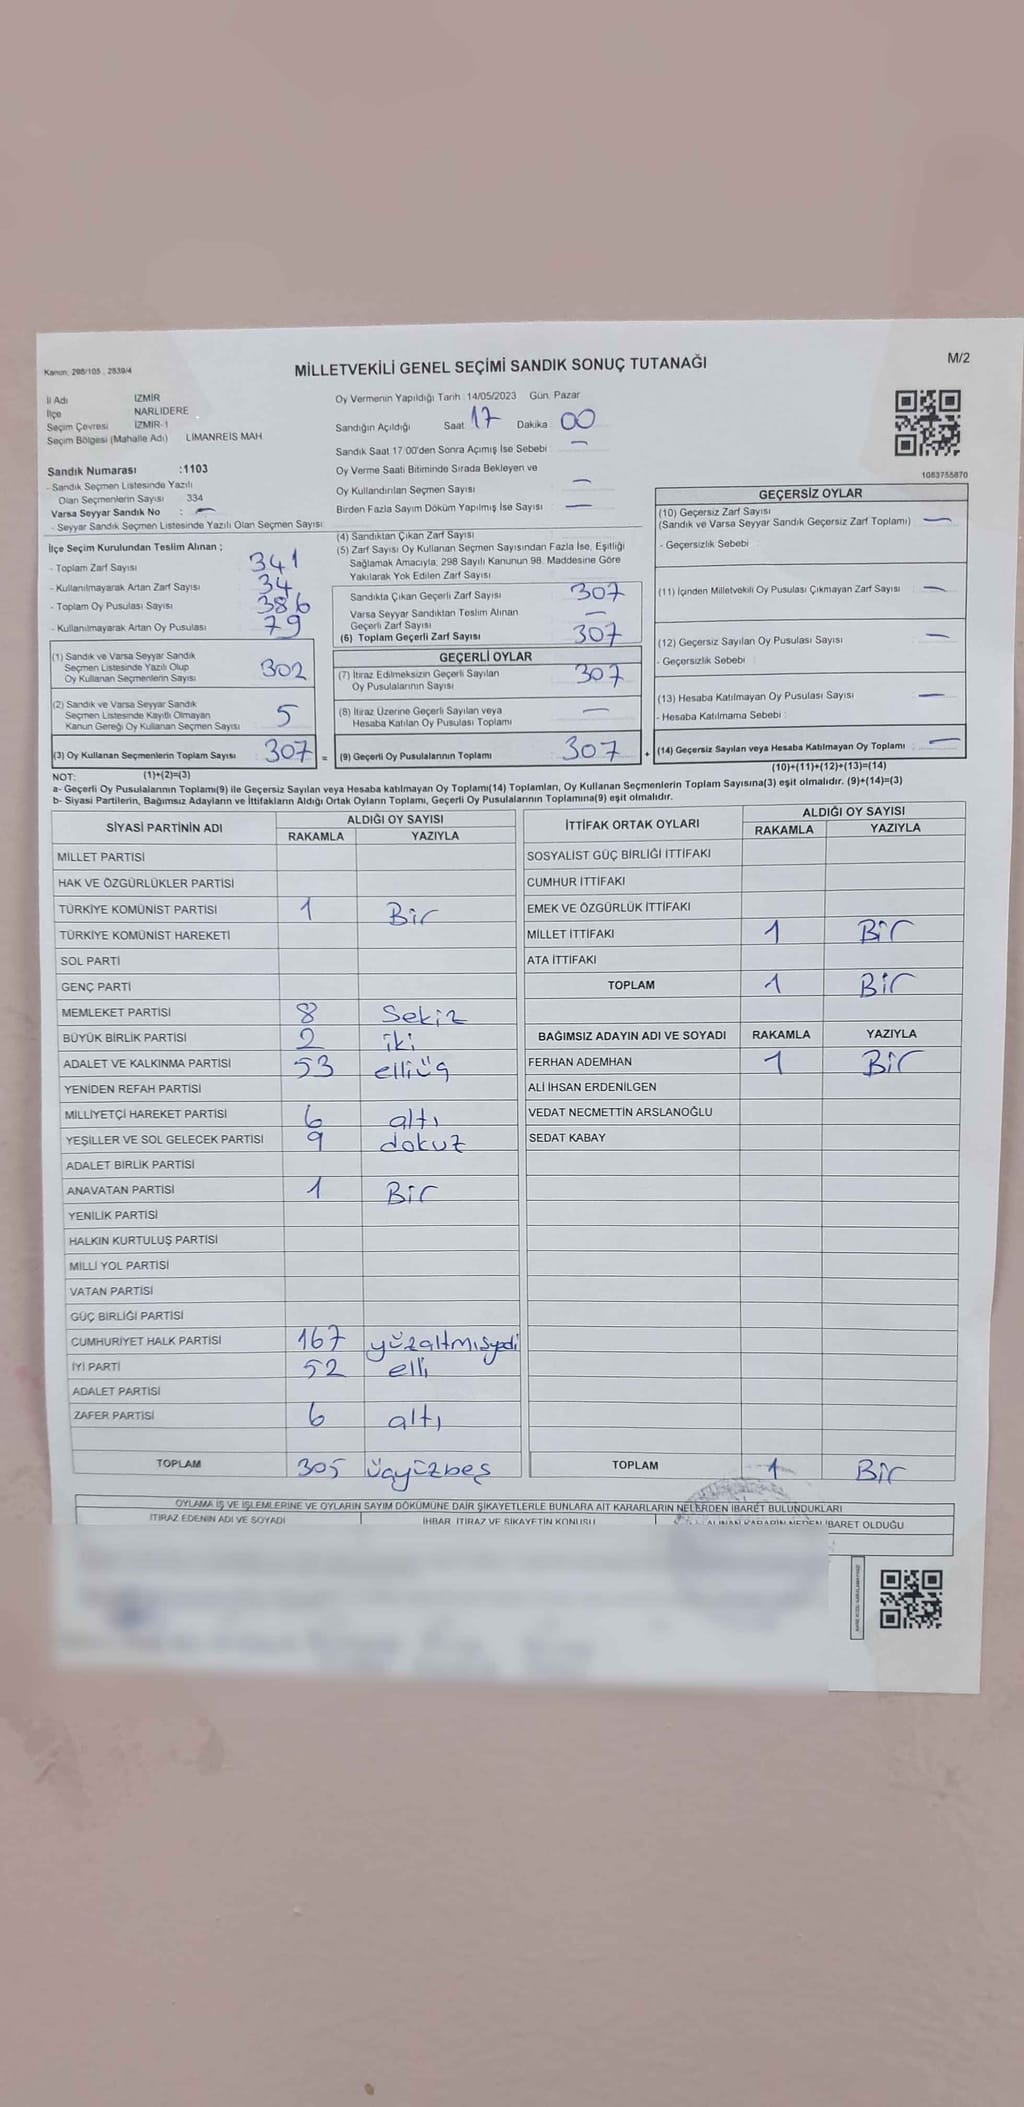 Kanun: 298/105 , 2839/4
MİLLETVEKİLİ GENEL SEÇİMİ SANDIK SONUÇ TUTANAĞI
M/2
İl Adı İZMİR
İlçe NARLIDERE
Seçim Çevresi İZMİR-1
Seçim Bölgesi (Mahalle Adı) LİMANREİS MAH
Sandık Numarası :1103
- Sandık Seçmen Listesinde Yazılı
Olan Seçmenlerin Sayısı 334
Varsa Seyyar Sandık No : —
- Seyyar Sandık Seçmen Listesinde Yazılı Olan Seçmen Sayısı:
Oy Vermenin Yapıldığı Tarih : 14/05/2023 Gün: Pazar
Sandığın Açıldığı Saat 17 Dakika 00
Sandık Saat 17:00'den Sonra Açımış İse Sebebi : —
Oy Verme Saati Bitiminde Sırada Bekleyen ve
Oy Kullandırılan Seçmen Sayısı —
Birden Fazla Sayım Döküm Yapılmış İse Sayısı —
1083755870
İlçe Seçim Kurulundan Teslim Alınan ;
- Toplam Zarf Sayısı 341
- Kullanılmayarak Artan Zarf Sayısı 34
- Toplam Oy Pusulası Sayısı 386
- Kullanılmayarak Artan Oy Pusulası 79
(1) Sandık ve Varsa Seyyar Sandık
Seçmen Listesinde Yazılı Olup
Oy Kullanan Seçmenlerin Sayısı 302
(2) Sandık ve Varsa Seyyar Sandık
Seçmen Listesinde Kayıtlı Olmayan
Kanun Gereği Oy Kullanan Seçmen Sayısı 5
(3) Oy Kullanan Seçmenlerin Toplam Sayısı 307 =
(4) Sandıktan Çıkan Zarf Sayısı
(5) Zarf Sayısı Oy Kullanan Seçmen Sayısından Fazla İse, Eşitliği
Sağlamak Amacıyla, 298 Sayılı Kanunun 98. Maddesine Göre
Yakılarak Yok Edilen Zarf Sayısı
Sandıkta Çıkan Geçerli Zarf Sayısı 307
Varsa Seyyar Sandıktan Teslim Alınan
Geçerli Zarf Sayısı —
(6) Toplam Geçerli Zarf Sayısı 307
GEÇERLİ OYLAR
(7) İtiraz Edilmeksizin Geçerli Sayılan
Oy Pusulalarının Sayısı 307
(8) İtiraz Üzerine Geçerli Sayılan veya
Hesaba Katılan Oy Pusulası Toplamı —
(9) Geçerli Oy Pusulalarının Toplamı 307 +
GEÇERSİZ OYLAR
(10) Geçersiz Zarf Sayısı
(Sandık ve Varsa Seyyar Sandık Geçersiz Zarf Toplamı) —
- Geçersizlik Sebebi :
(11) İçinden Milletvekili Oy Pusulası Çıkmayan Zarf Sayısı —
(12) Geçersiz Sayılan Oy Pusulası Sayısı —
- Geçersizlik Sebebi :
(13) Hesaba Katılmayan Oy Pusulası Sayısı —
- Hesaba Katılmama Sebebi :
(14) Geçersiz Sayılan veya Hesaba Katılmayan Oy Toplamı : —
NOT: (1)+(2)=(3)
(10)+(11)+(12)+(13)=(14)
a- Geçerli Oy Pusulalarının Toplamı(9) ile Geçersiz Sayılan veya Hesaba katılmayan Oy Toplamı(14) Toplamları, Oy Kullanan Seçmenlerin Toplam Sayısına(3) eşit olmalıdır. (9)+(14)=(3)
b- Siyasi Partilerin, Bağımsız Adayların ve İttifakların Aldığı Ortak Oyların Toplamı, Geçerli Oy Pusulalarının Toplamına(9) eşit olmalıdır.
SİYASİ PARTİNİN ADI ALDIĞI OY SAYISI
RAKAMLA YAZIYLA
MİLLET PARTİSİ
HAK VE ÖZGÜRLÜKLER PARTİSİ
TÜRKİYE KOMÜNİST PARTİSİ 1 Bir
TÜRKİYE KOMÜNİST HAREKETİ
SOL PARTİ
GENÇ PARTİ
MEMLEKET PARTİSİ 8 Sekiz
BÜYÜK BİRLİK PARTİSİ 2 iki
ADALET VE KALKINMA PARTİSİ 53 elliüç
YENİDEN REFAH PARTİSİ
MİLLİYETÇİ HAREKET PARTİSİ 6 altı
YEŞİLLER VE SOL GELECEK PARTİSİ 9 dokuz
ADALET BİRLİK PARTİSİ
ANAVATAN PARTİSİ 1 Bir
YENİLİK PARTİSİ
HALKIN KURTULUŞ PARTİSİ
MİLLİ YOL PARTİSİ
VATAN PARTİSİ
GÜÇ BİRLİĞİ PARTİSİ
CUMHURİYET HALK PARTİSİ 167 yüzaltmışyedi
İYİ PARTİ 52 elli
ADALET PARTİSİ
ZAFER PARTİSİ 6 altı
TOPLAM 305 üçyüzbeş
İTTİFAK ORTAK OYLARI ALDIĞI OY SAYISI
RAKAMLA YAZIYLA
SOSYALİST GÜÇ BİRLİĞİ İTTİFAKI
CUMHUR İTTİFAKI
EMEK VE ÖZGÜRLÜK İTTİFAKI
MİLLET İTTİFAKI 1 Bir
ATA İTTİFAKI
TOPLAM 1 Bir
BAĞIMSIZ ADAYIN ADI VE SOYADI RAKAMLA YAZIYLA
FERHAN ADEMHAN 1 Bir
ALİ İHSAN ERDENİLGEN
VEDAT NECMETTİN ARSLANOĞLU
SEDAT KABAY
TOPLAM 1 Bir
OYLAMA İŞ VE İŞLEMLERİNE VE OYLARIN SAYIM DÖKÜMÜNE DAİR ŞİKAYETLERLE BUNLARA AİT KARARLARIN NELERDEN İBARET BULUNDUKLARI
İTİRAZ EDENİN ADI VE SOYADI İHBAR, İTİRAZ VE ŞİKAYETİN KONUSU ALINAN KARARIN NEDEN İBARET OLDUĞU